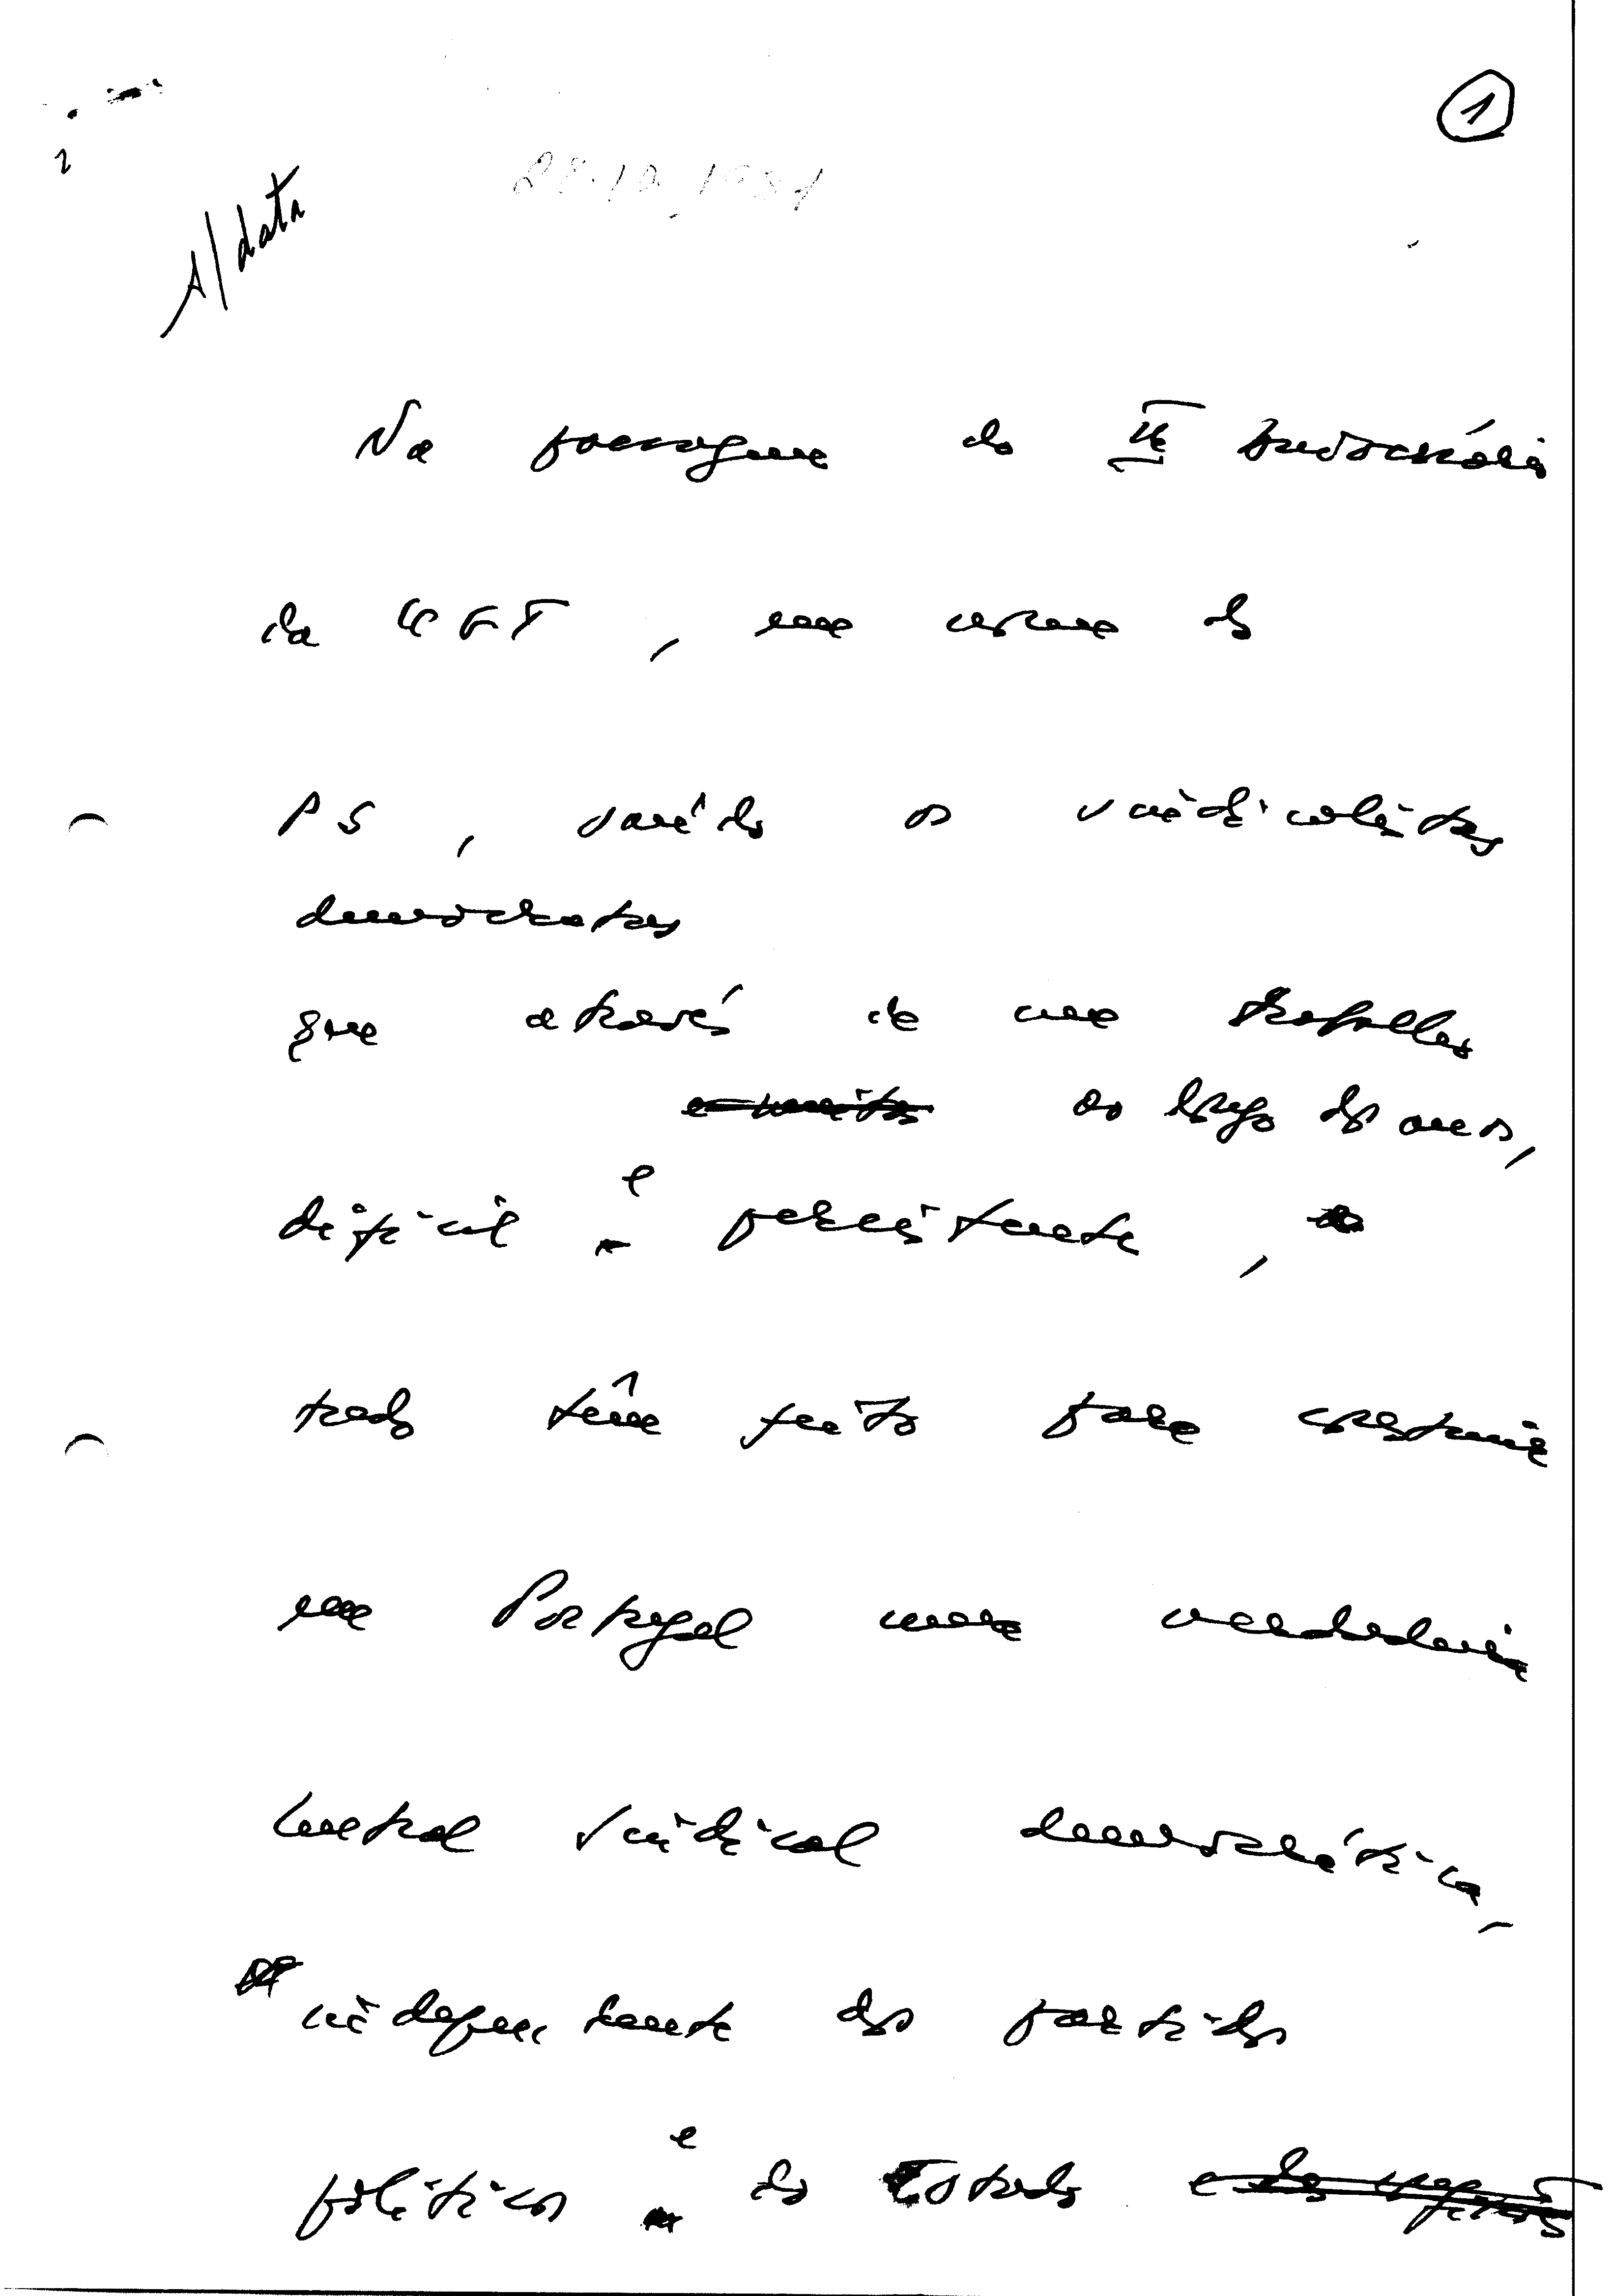 1
28.10.1981
s/data
Na passagem do IIº Aniversário
da UGT, em nome do
PS, saúdo os sindicalistas
democratas
que através de um trabalho
ao longo dos anos,
difícil e persistente,
tudo têm feito para construir
em Portugal uma verdadeira
Central Sindical democrática,
independente dos partidos
políticos e do Estado